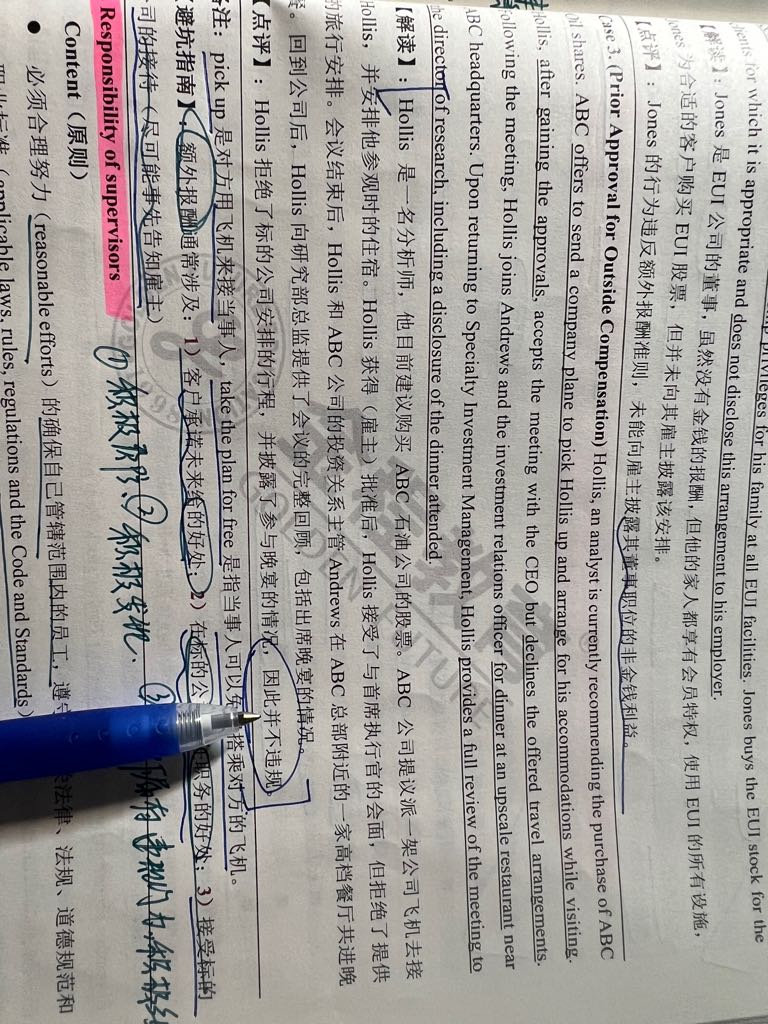 privileges for his family at all EUI facilities. Jones buys the EUI stock for the
clients for which it is appropriate and does not disclose this arrangement to his employer.
【解读】：Jones 是 EUI 公司的董事，虽然没有金钱的报酬，但他的家人都享有会员特权，使用 EUI 的所有设施，
Jones 为合适的客户购买 EUI 股票，但并未向其雇主披露该安排。
【点评】：Jones 的行为违反额外报酬准则，未能向雇主披露其董事职位的非金钱利益。
Case 3. (Prior Approval for Outside Compensation) Hollis, an analyst is currently recommending the purchase of ABC
Oil shares. ABC offers to send a company plane to pick Hollis up and arrange for his accommodations while visiting.
Hollis, after gaining the approvals, accepts the meeting with the CEO but declines the offered travel arrangements.
Following the meeting, Hollis joins Andrews and the investment relations officer for dinner at an upscale restaurant near
ABC headquarters. Upon returning to Specialty Investment Management, Hollis provides a full review of the meeting to
the director of research, including a disclosure of the dinner attended.
【解读】：Hollis 是一名分析师，他目前建议购买 ABC 石油公司的股票。ABC 公司提议派一架公司飞机去接
Hollis，并安排他参观时的住宿。Hollis 获得（雇主）批准后，Hollis 接受了与首席执行官的会面，但拒绝了提供
的旅行安排。会议结束后，Hollis 和 ABC 公司的投资关系主管 Andrews 在 ABC 总部附近的一家高档餐厅共进晚
餐。回到公司后，Hollis 向研究部总监提供了会议的完整回顾，包括出席晚宴的情况。
【点评】：Hollis 拒绝了标的公司安排的行程，并披露了参与晚宴的情况，因此并不违规。
备注：pick up 是对方用飞机来接当事人，take the plan for free 是指当事人可以 搭乘对方的飞机。
【避坑指南】：额外报酬通常涉及：1）客户承诺未来给的好处；2）在标的公 职务的好处；3）接受标的
公司的接待（尽可能事先告知雇主）
Responsibility of supervisors
① 积极预防、② 积极发现、
Content（原则）
● 必须合理努力（reasonable efforts）的确保自己管辖范围内的员工，遵守 法律、法规、道德规范和
职业标准（applicable laws, rules, regulations and the Code and Standards）
金程教育
GOLDEN FUTURE